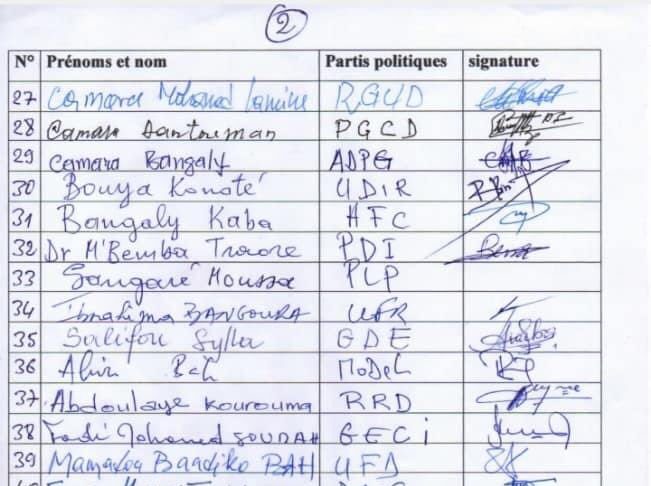 2
N° Prénoms et nom Partis politiques signature
27 Camara Mohamed Lamine RGUD
28 Camara PGCD
29 Camara Bangaly ADPG
30 Bouya Konaté UDIR
31 Bangaly Kaba HFC
32 Dr M'Bemba Traore PDI
33 Sangaré Moussa PLP
34 Ibrahima BANGOURA UFR
35 Salifou Sylla GDE
36 MoDeL
37 Abdoulaye Kourouma RRD
38 Mohamed SOUMAH GECi
39 Mamadou Baadiko BAH UFD